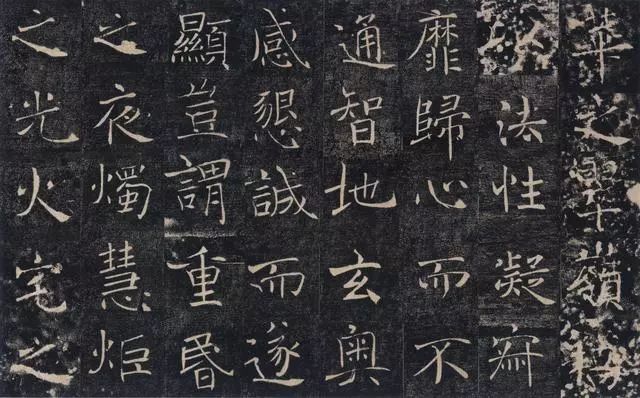 華之翠嶺竊
以法性凝寂
靡歸心而不
通智地玄奧
感懇誠而遂
顯豈謂重昏
之夜燭慧炬
之光火宅之